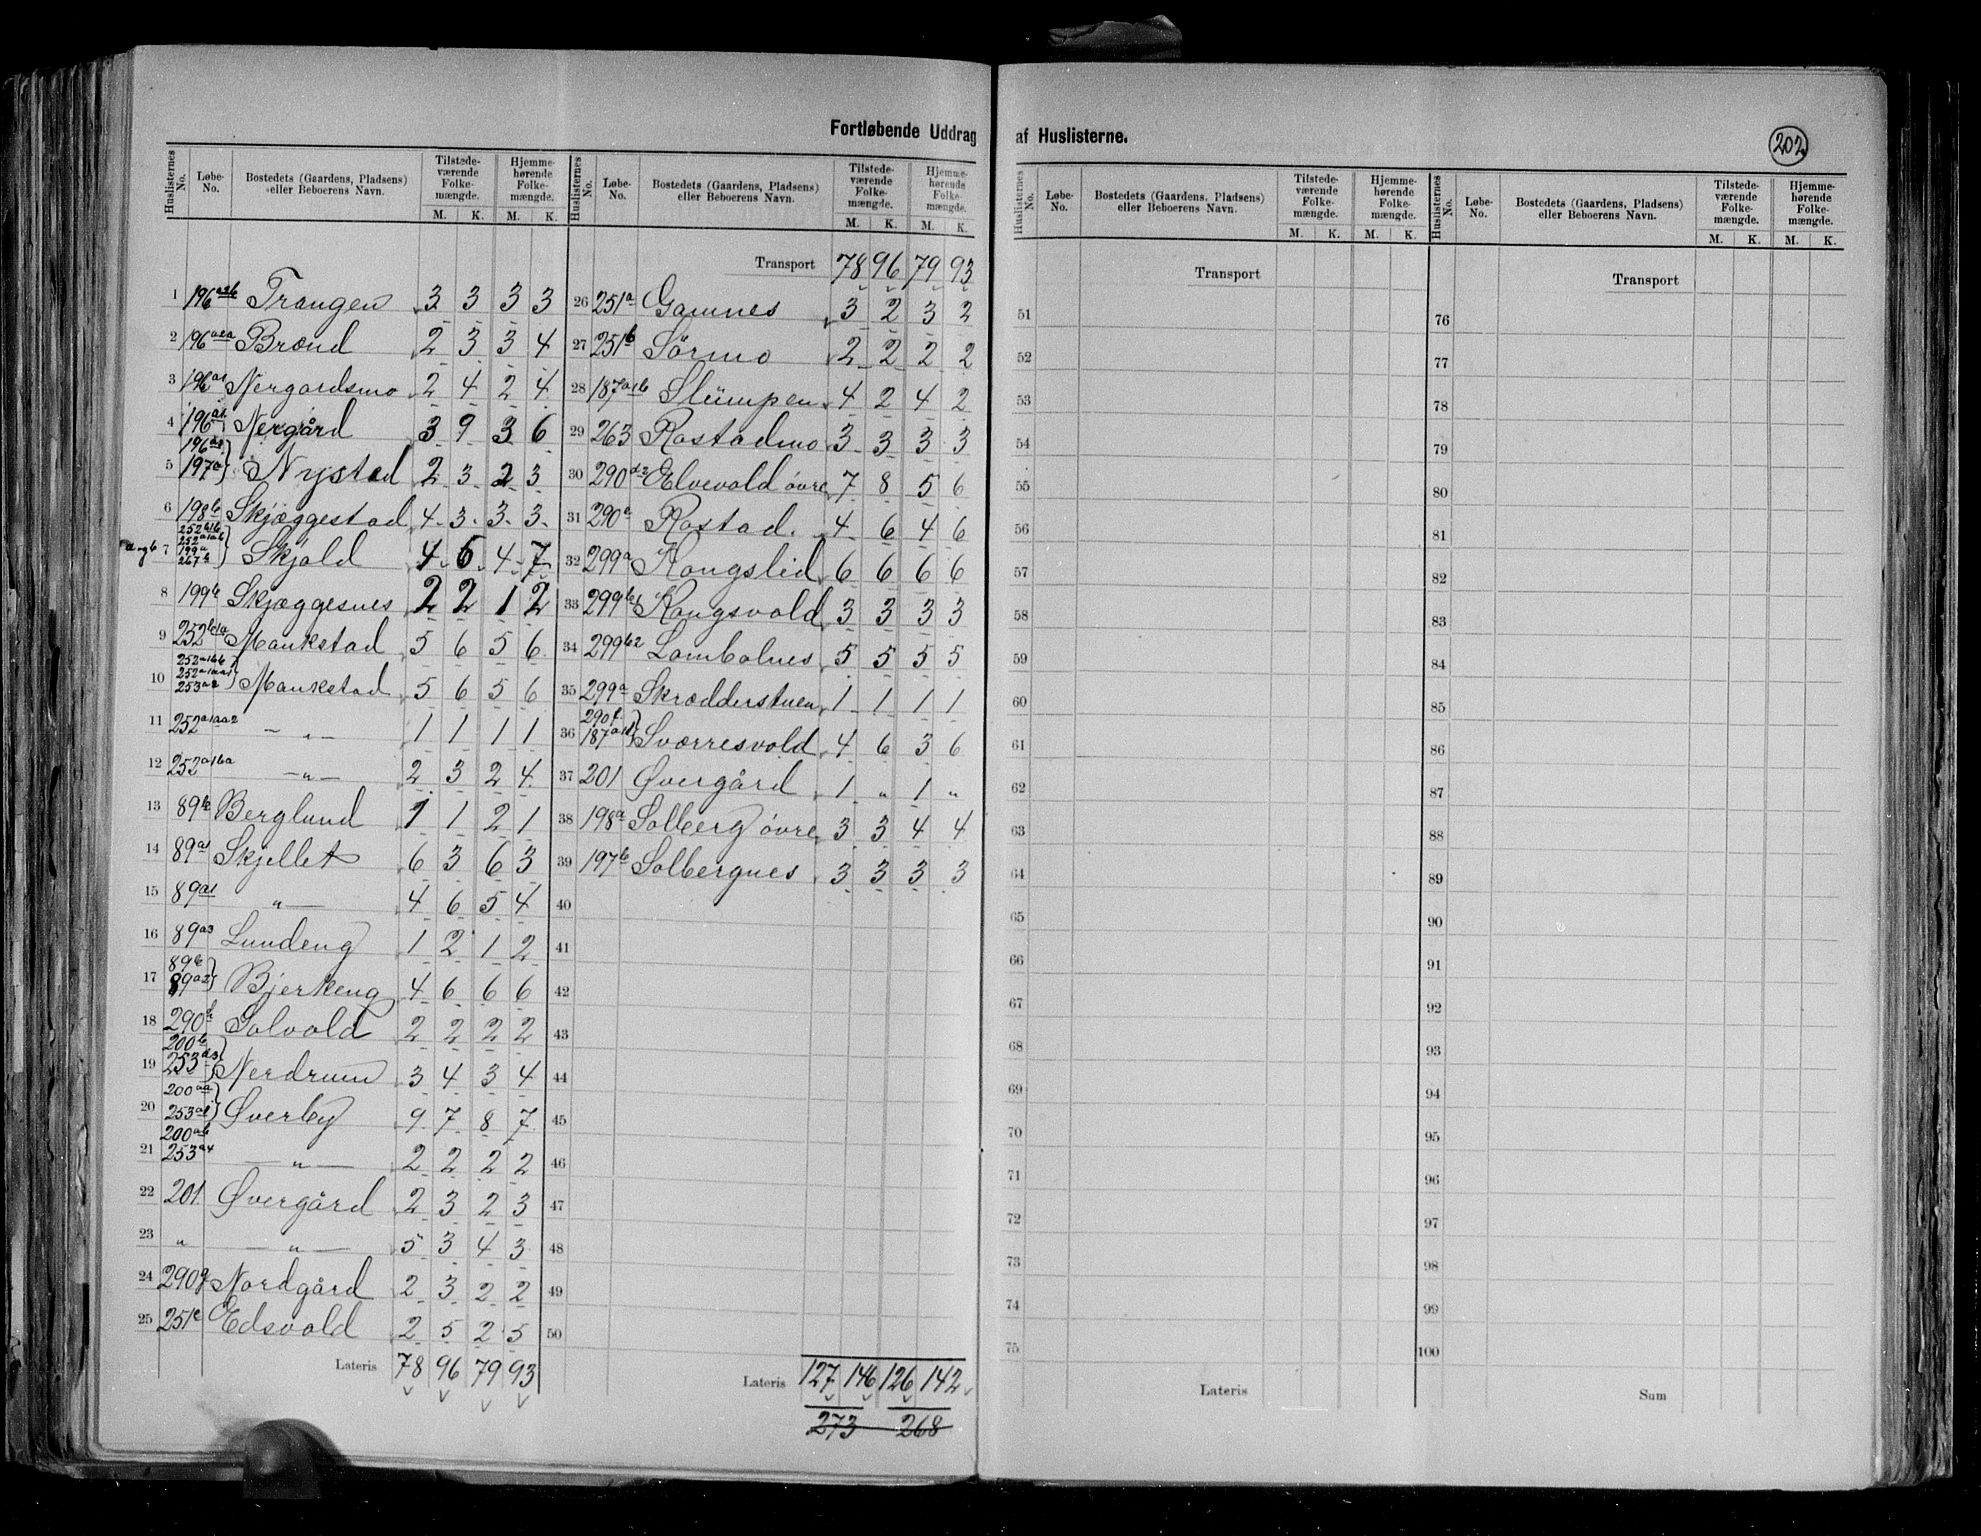 Fortløbende Uddrag af Huslisterne.
202
Huslisternes No. Løbe-No. Bostedets (Gaardens, Pladsens) eller Beboerens Navn. Tilstedeværende Folkemængde. M. K. Hjemmehørende Folkemængde. M. K.
1 196 a2b Trangen 3 3 3 3
2 196 a2a Brænd 2 3 3 4
3 196 a1 Nergardsmo 2 4 2 4
4 196 a1 Nergård 3 9 3 6
196
5 197 a Nystad 2 3 2 3
6 198 b Skjæggestad 4 3 3 3
252 b1b
252 a1ab
7 199 a Skjold 4 6 4 7
267 b
8 199 b Skjæggesnes 2 2 1 2
9 252 b1a Maukstad 5 6 5 6
252 a1bb
252 a1aa1
10 253 a2 Maukstad 5 6 5 6
11 252 a1aa2 — „ — 1 1 1 1
12 252 a1ba — „ — 2 3 2 4
13 89 b Berglund 1 1 2 1
14 89 a1 Skjellet 6 3 6 3
15 89 a1 „ — 4 6 5 4
16 89 a3 Lundeng 1 2 1 2
89 b
17 89 a2 Bjerkeng 4 6 6 6
18 290 Solvold 2 2 2 2
200 b
19 253 a3 Nerdrum 3 4 3 4
200 aa
20 253 a1 Øverby 9 7 8 7
200 ab
21 253 a4 — „ — 2 2 2 2
22 201. Øvergård 2 3 2 3
23 „ — „ — 5 3 4 3
24 290 g Nordgård 2 3 2 2
25 251 c Edsvold 2 5 2 5
Lateris 78 96 79 93
Huslisternes No. Løbe-No. Bostedets (Gaardens, Pladsens) eller Beboerens Navn. Tilstedeværende Folkemængde. M. K. Hjemmehørende Folkemængde. M. K.
Transport 78 96 79 93
26 251 a Gamnes 3 2 3 2
27 251 b Sörmo 2 2 2 2
28 187 a1b Slümpen 4 2 4 2
29 263 Rostadmo 3 3 3 3
30 290 d2 Elvevold övre 7 8 5 6
31 290 a Rostad. 4 6 4 6
32 299 a Kongslid 6 6 6 6
33 299 b1 Kongsvold 3 3 3 3
34 299 b2 Lombolnes 5 5 5 5
35 299 a Skrædderstuen 1 1 1 1
290 f
36 187 Sværresvold 4 6 3 6
37 201 Øvergård 1 „ 1 „
38 198 a Solberg övre 3 3 4 4
39 197 b Solbergnes 3 3 3 3
40
41
42
43
44
45
46
47
48
49
50
Lateris 127 146 126 142
273 268
Huslisternes No. Løbe-No. Bostedets (Gaardens, Pladsens) eller Beboerens Navn. Tilstedeværende Folkemængde. M. K. Hjemmehørende Folkemængde. M. K.
Transport
51
52
53
54
55
56
57
58
59
60
61
62
63
64
65
66
67
68
69
70
71
72
73
74
75
Lateris
Huslisternes No. Løbe-No. Bostedets (Gaardens, Pladsens) eller Beboerens Navn. Tilstedeværende Folkemængde. M. K. Hjemmehørende Folkemængde. M. K.
Transport
76
77
78
79
80
81
82
83
84
85
86
87
88
89
90
91
92
93
94
95
96
97
98
99
100
Sum